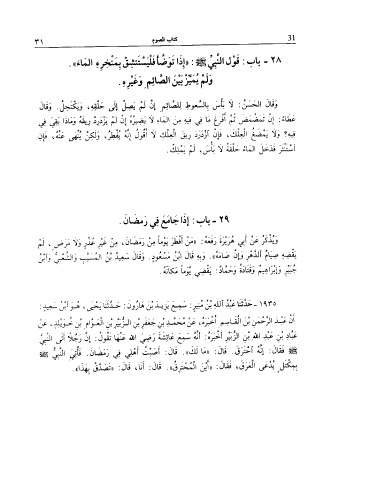 31 كتاب الصوم ٣١
٢٨ - باب: قَوْلِ النَّبِيِّ ﷺ: «إِذَا تَوَضَّأَ فَلْيَسْتَنْشِقْ بِمَنْخِرِهِ المَاءَ».
وَلَمْ يُمَيِّزْ بَيْنَ الصَّائِمِ وَغَيْرِهِ.
وَقَالَ الحَسَنُ: لاَ بَأْسَ بِالسَّعُوطِ لِلصَّائِمِ إِنْ لَمْ يَصِلْ إِلَى حَلْقِهِ، وَيَكْتَحِلُ. وَقَالَ
عَطَاءٌ: إِنْ تَمَضْمَضَ ثُمَّ أَفْرَغَ مَا فِي فِيهِ مِنَ المَاءِ لاَ يَضِيرُهُ إِنْ لَمْ يَزْدَرِدْ رِيقَهُ وَمَاذَا بَقِيَ فِي
فِيهِ؟ وَلاَ يَمْضَغُ العِلْكَ، فَإِنِ ازْدَرَدَ رِيقَ العِلْكِ لاَ أَقُولُ إِنَّهُ يُفْطِرُ، وَلكِنْ يُنْهَى عَنْهُ، فَإِنِ
اسْتَنْثَرَ فَدَخَلَ المَاءُ حَلْقَهُ لاَ بَأْسَ، لَمْ يَمْلِكْ.
٢٩ - باب: إِذَا جَامَعَ فِي رَمَضَانَ.
وَيُذْكَرُ عَنْ أَبِي هُرَيْرَةَ رَفَعَهُ: «مَنْ أَفْطَرَ يَوْماً مِنْ رَمَضَانَ، مِنْ غَيْرِ عُذْرٍ وَلاَ مَرَضٍ، لَمْ
يَقْضِهِ صِيَامُ الدَّهْرِ وَإِنْ صَامَهُ». وَبِهِ قَالَ ابْنُ مَسْعُودٍ. وَقَالَ سَعِيدُ بْنُ المُسَيَّبِ وَالشَّعْبِيُّ وَابْنُ
جُبَيْرٍ وَإِبْرَاهِيمُ وَقَتَادَةُ وَحَمَّادٌ: يَقْضِي يَوْماً مَكَانَهُ.
١٩٣٥ - حَدَّثَنَا عَبْدُ اللهِ بْنُ مُنِيرٍ: سَمِعَ يَزِيدَ بْنَ هَارُونَ: حَدَّثَنَا يَحْيَى، هُوَ ابْنُ سَعِيدٍ:
أَنَّ عَبْدَ الرَّحْمنِ بْنَ القَاسِمِ أَخْبَرَهُ، عَنْ مُحَمَّدِ بْنِ جَعْفَرِ بْنِ الزُّبَيْرِ بْنِ العَوَّامِ بْنِ خُوَيْلِدٍ، عَنْ
عَبَّادِ بْنِ عَبْدِ اللهِ بْنِ الزُّبَيْرِ أَخْبَرَهُ: أَنَّهُ سَمِعَ عَائِشَةَ رَضِيَ اللهُ عَنْهَا تَقُولُ: إِنَّ رَجُلاً أَتَى النَّبِيَّ
ﷺ فَقَالَ: إِنَّهُ احْتَرَقَ. قَالَ: «مَا لَكَ». قَالَ: أَصَبْتُ أَهْلِي فِي رَمَضَانَ. فَأُتِيَ النَّبِيُّ ﷺ
بِمِكْتَلٍ يُدْعَى العَرَقَ، فَقَالَ: «أَيْنَ المُحْتَرِقُ». قَالَ: أَنَا، قَالَ: «تَصَدَّقْ بِهَذَا».